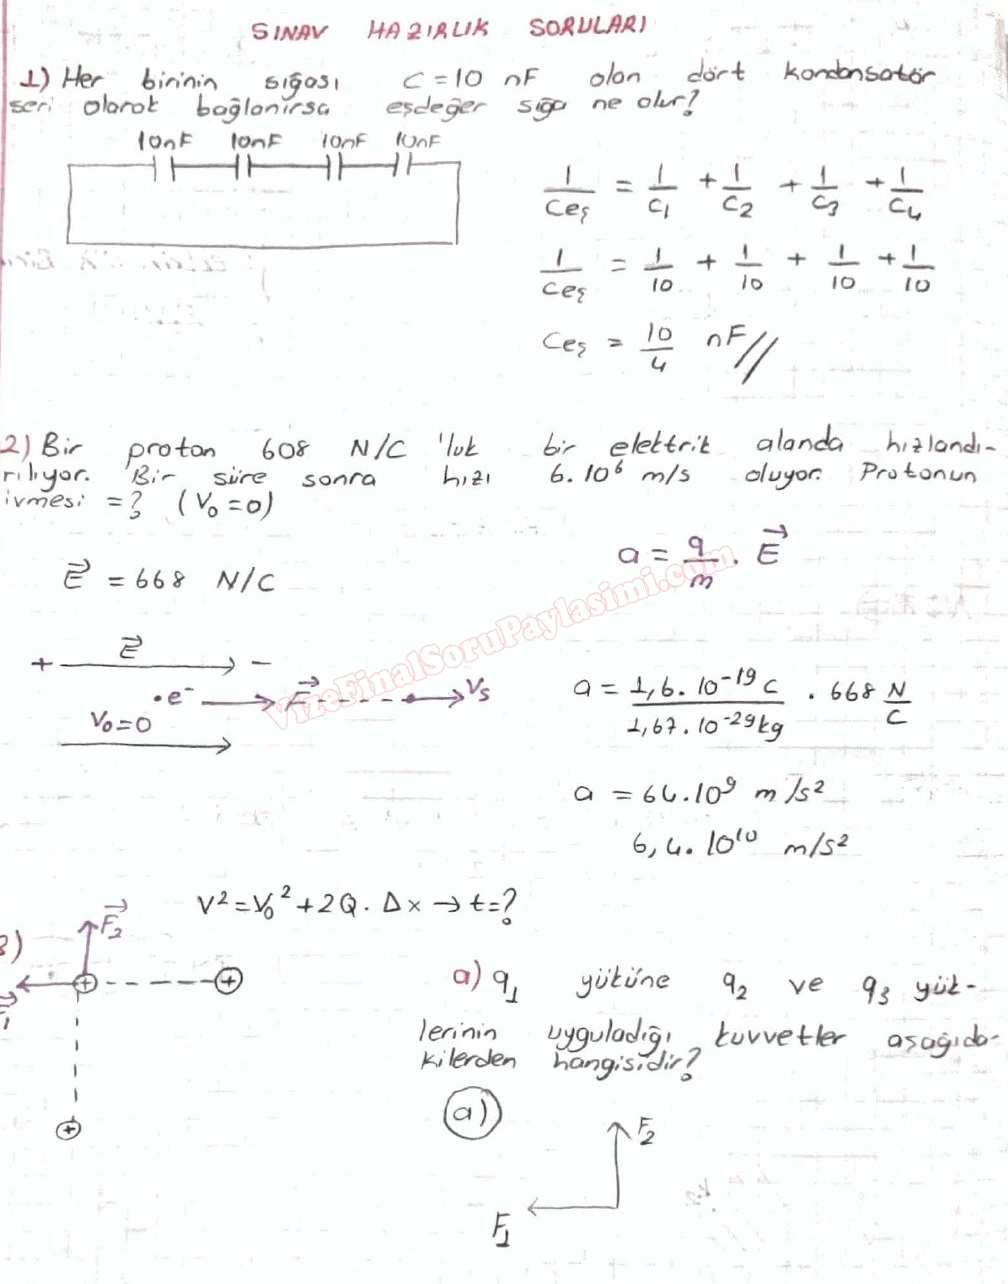 SINAV HAZIRLIK SORULARI
1) Her birinin sığası C=10 nF olan dört kondansatör
seri olarak bağlanırsa eşdeğer sığa ne olur?
10nF 10nF 10nF 10nF
1/Ceş = 1/C1 + 1/C2 + 1/C3 + 1/C4
1/Ceş = 1/10 + 1/10 + 1/10 + 1/10
Ceş = 10/4 nF//
2) Bir proton 608 N/C 'luk bir elektrik alanda hızlandı-
rılıyor. Bir süre sonra hızı 6.10⁶ m/s oluyor. Protonun
ivmesi =? (V₀=0)
a = q/m . E⃗
E⃗ = 668 N/C
E⃗
+ −
•e⁻ F⃗ Vs
V₀=0
a = 1,6.10⁻¹⁹ C / 1,67.10⁻²⁹ kg . 668 N/C
a = 64.10⁹ m/s²
6,4.10¹⁰ m/s²
V² = V₀² + 2Q.Δx → t=?
3)
F⃗₂
+ +
F⃗₁
+
a) q₁ yüküne q₂ ve q₃ yük-
lerinin uyguladığı kuvvetler aşağıda-
kilerden hangisidir?
a)
F₂
F₁
VizeFinalSoruPaylasimi.com